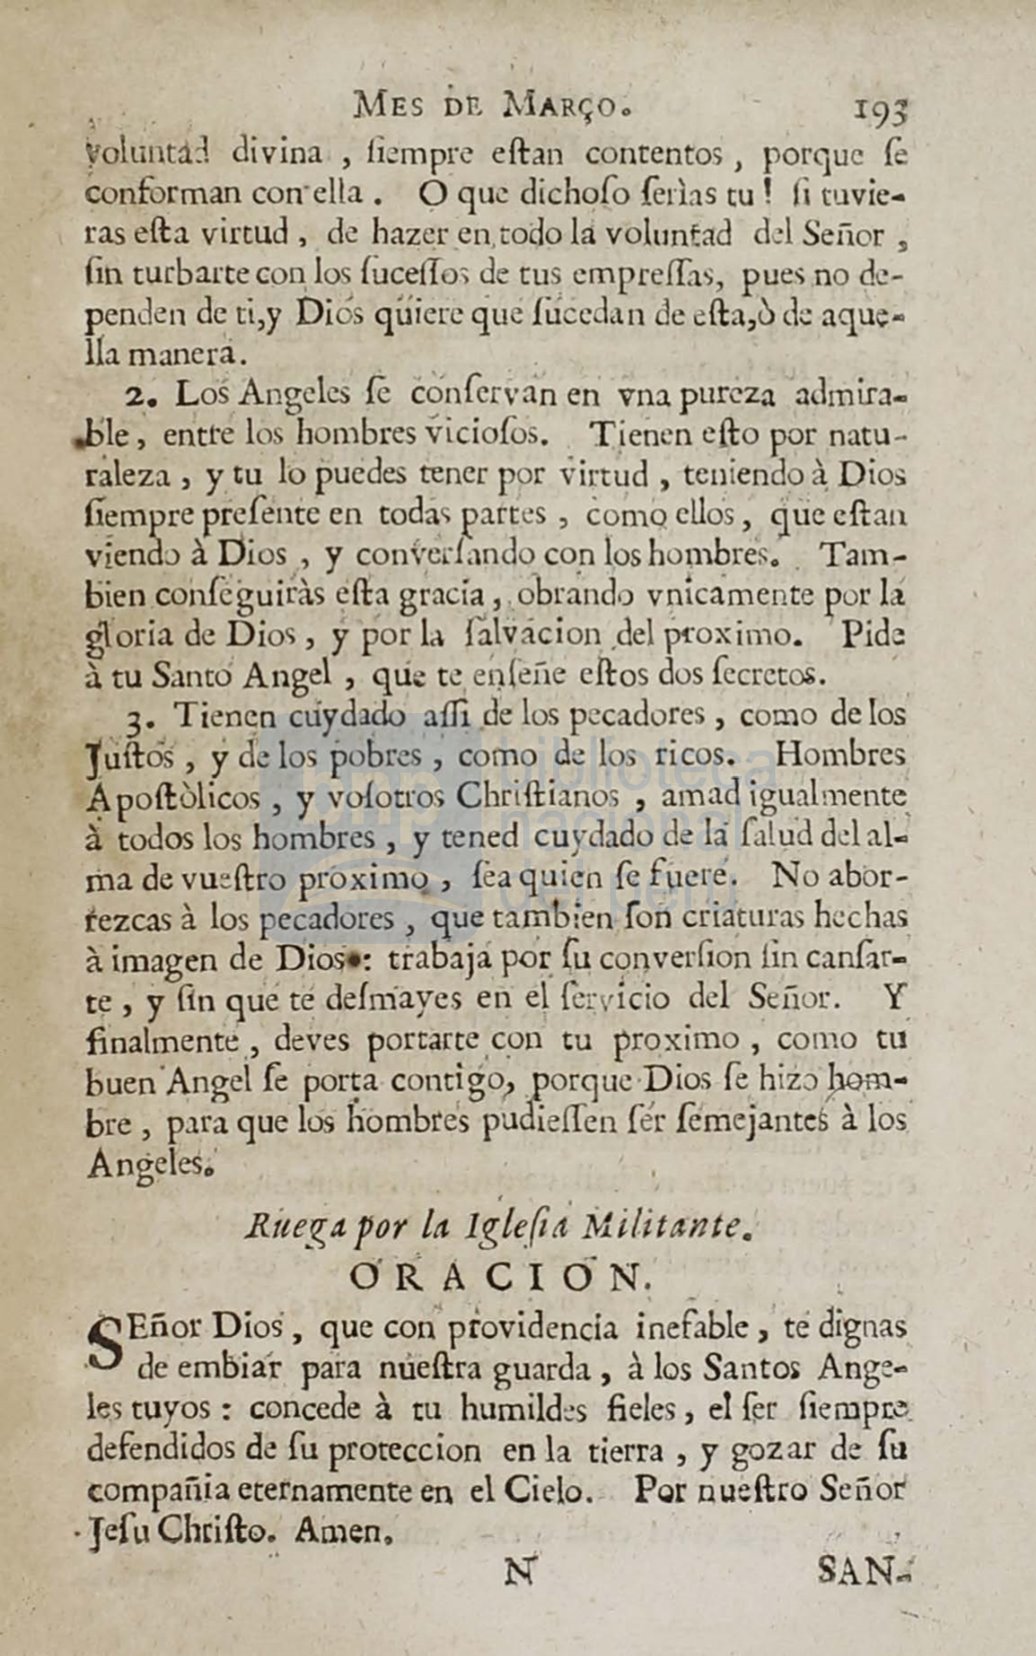 MES DE MARÇO. 193
voluntad divina , ſiempre eſtan contentos , porque ſe
conforman con ella . O que dichoſo ſerìas tu ! ſi tuvie-
ras eſta virtud , de hazer en todo la voluntad del Señor ,
ſin turbarte con los ſuceſſos de tus empreſſas, pues no de-
penden de ti,y Dios quiere que ſucedan de eſta,ò de aque-
lla manera.
2. Los Angeles ſe conſervan en vna pureza admira-
ble , entre los hombres vicioſos. Tienen eſto por natu-
raleza , y tu lo puedes tener por virtud , teniendo à Dios
ſiempre preſente en todas partes , como ellos , que eſtan
viendo à Dios , y converſando con los hombres. Tam-
bien conſeguiràs eſta gracia , obrando vnicamente por la
gloria de Dios , y por la ſalvacion del proximo. Pide
à tu Santo Angel , que te enſeñe eſtos dos ſecretos.
3. Tienen cuydado aſſi de los pecadores , como de los
Juſtos , y de los pobres , como de los ricos. Hombres
Apoſtòlicos , y voſotros Chriſtianos , amad igualmente
à todos los hombres , y tened cuydado de la ſalud del al-
ma de vueſtro proximo , ſea quien ſe fuere. No abor-
rezcas à los pecadores , que tambien ſon criaturas hechas
à imagen de Dios : trabaja por ſu converſion ſin canſar-
te , y ſin que te deſmayes en el ſervicio del Señor. Y
finalmente , deves portarte con tu proximo , como tu
buen Angel ſe porta contigo, porque Dios ſe hizo hom-
bre , para que los hombres pudieſſen ſer ſemejantes à los
Angeles.
Ruega por la Igleſia Militante.
ORACION.
SEñor Dios , que con providencia inefable , te dignas
de embiar para nueſtra guarda , à los Santos Ange-
les tuyos : concede à tu humildes fieles , el ſer ſiempre
defendidos de ſu proteccion en la tierra , y gozar de ſu
compañia eternamente en el Cielo. Por nueſtro Señor
Jeſu Chriſto. Amen.
N SAN-
bnp biblioteca
nacional
del perú